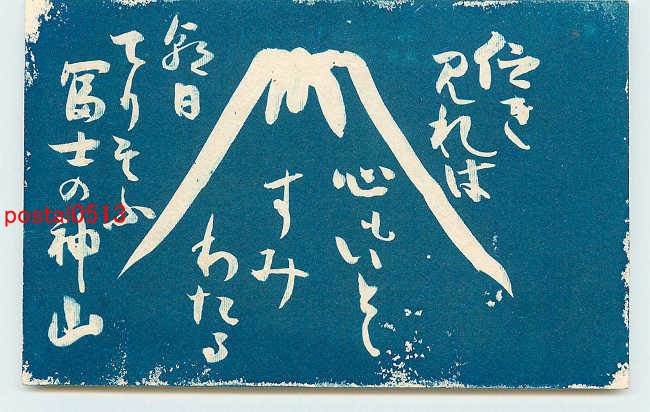 仰き
見れは
心もいとゝ
すみ
わたる
朝日
てりそふ
富士の神山
postal0513